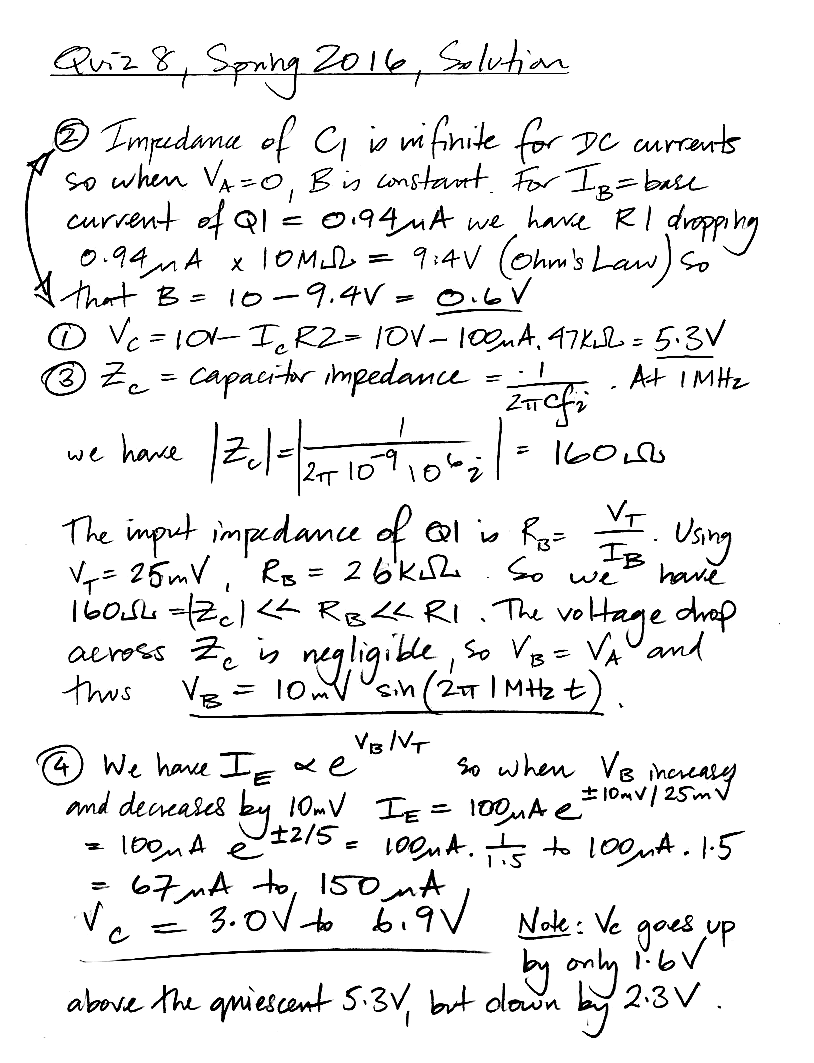 Quiz 8, Spring 2016, Solution
② Impedance of C1 is infinite for DC currents
so when V_A=0, B is constant. For I_B=base
current of Q1 = 0.94μA we have R1 dropping
0.94μA x 10MΩ = 9.4V (Ohm's Law) so
that B = 10-9.4V = 0.6V
① V_C = 10V - I_C R2 = 10V - 100μA. 47KΩ = 5.3V
③ Z_c = capacitor impedance = 1/2πCfi . At 1MHz
we have |Z_c| = |1/2π 10^-9 10^6 i| = 160Ω
The input impedance of Q1 is R_B = V_T/I_B. Using
V_T = 25mV, R_B = 26KΩ. So we have
160Ω = |Z_c| << R_B << R1. The voltage drop
across Z_c is negligible, so V_B = V_A and
thus V_B = 10mV sin(2π 1MHz t).
④ We have I_E ∝ e^V_B/V_T so when V_B increases
and decreases by 10mV I_E = 100μA e^±10mV/25mV
= 100μA e^±2/5 = 100μA. 1/1.5 to 100μA. 1.5
= 67μA to 150μA
V_C = 3.0V to 6.9V Note: Vc goes up
by only 1.6V
above the quiescent 5.3V, but down by 2.3V.